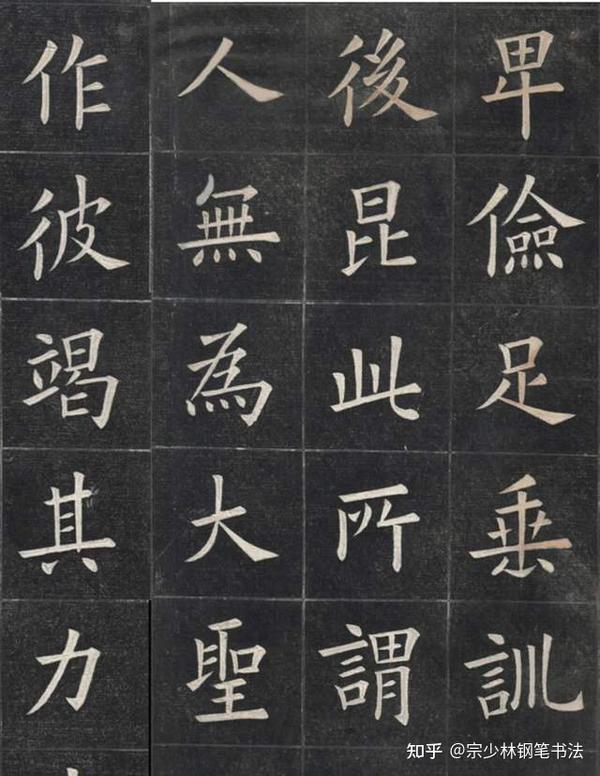 卑儉足垂訓
後昆此所謂
人無為大聖
作彼竭其力
知乎 @宗少林钢笔书法